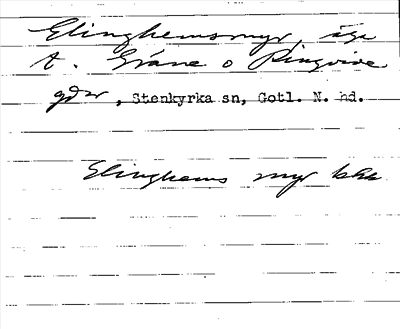 Elinghemsmyr, äga
t. Gråne o Ringvide
gdr, Stenkyrka sn, Gotl. N. hd.
Elinghems myr